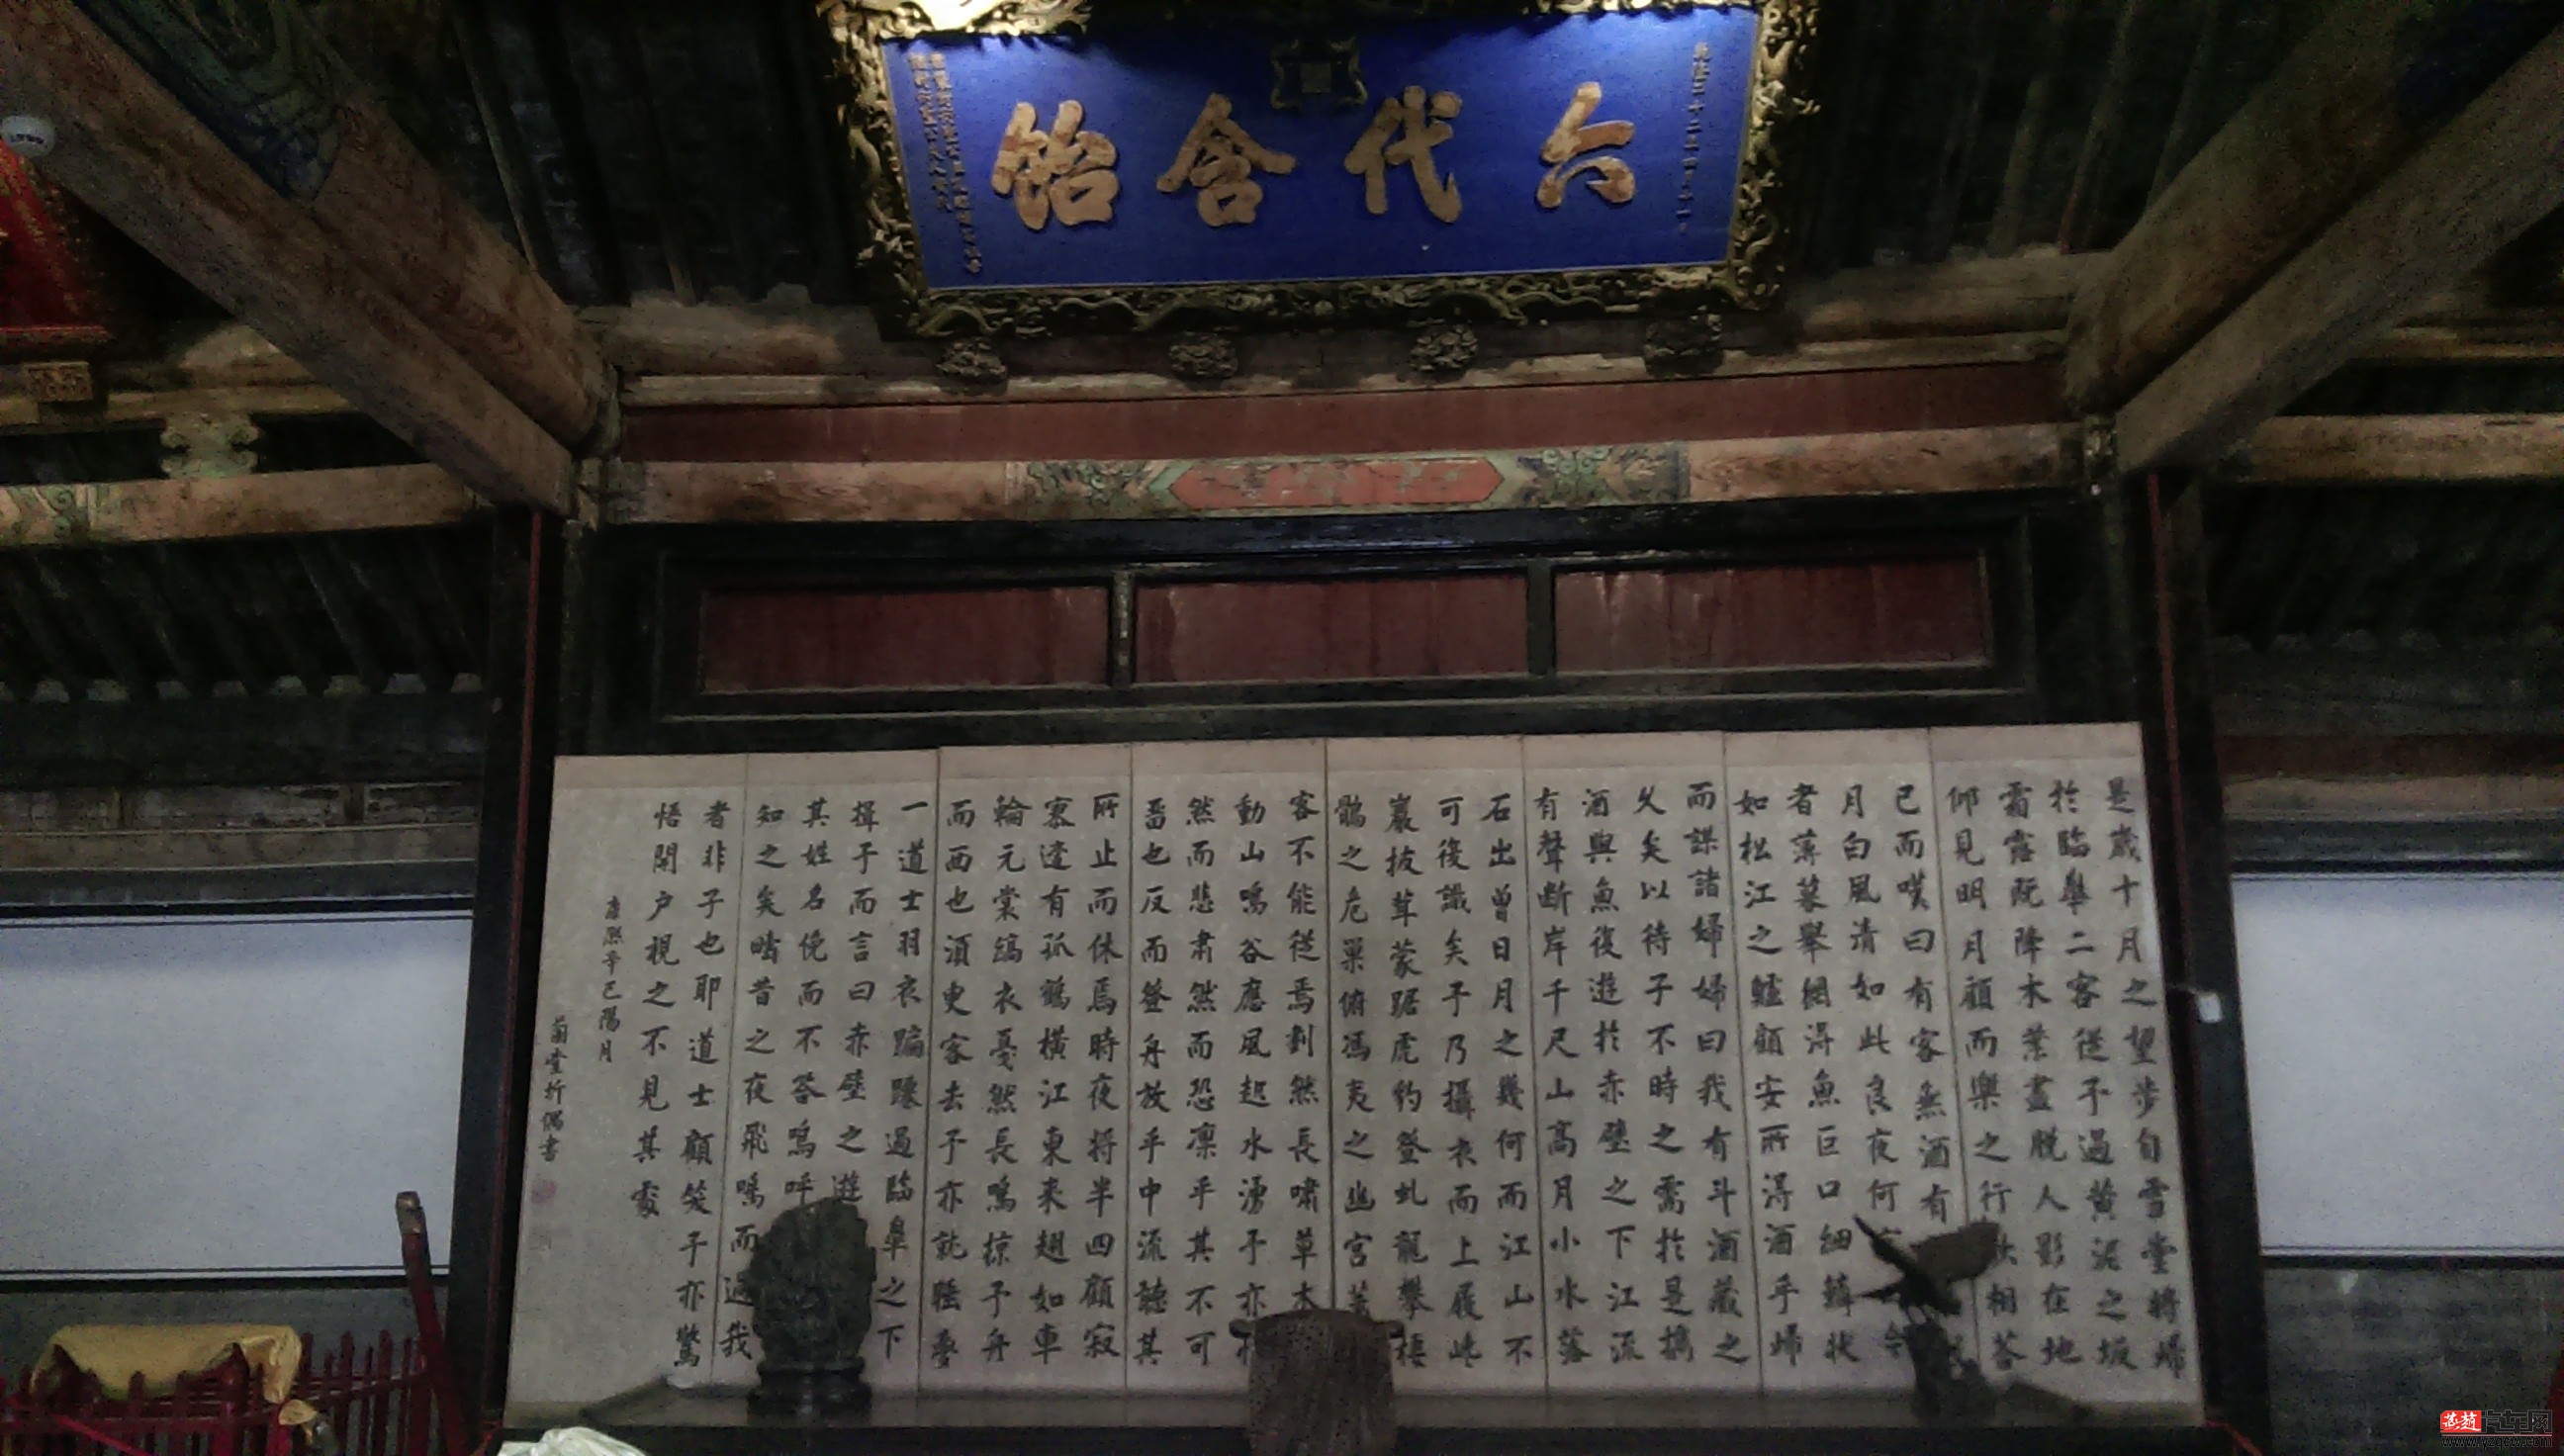 六代含飴
是歲十月之望步自雪堂將歸
於臨皋二客從予過黃泥之坂
霜露既降木葉盡脫人影在地
仰見明月顧而樂之行歌相荅
已而嘆曰有客無酒有
月白風清如此良夜何
者薄暮舉網得魚巨口細鱗狀
如松江之鱸顧安所得酒乎歸
而謀諸婦婦曰我有斗酒藏之
久矣以待子不時之需於是攜
酒與魚復遊於赤壁之下江流
有聲斷岸千尺山高月小水落
石出曾日月之幾何而江山不
可復識矣予乃攝衣而上履
巖披茸蒙踞虎豹登虬龍攀棲
鶻之危巢俯馮夷之幽宮蓋
客不能從焉劃然長嘯草木
動山鳴谷應風起水湧予亦悄
然而悲肅然而恐凜乎其不可
畱也反而登舟放乎中流聽其
所止而休焉時夜將半四顧寂
寥適有孤鶴橫江東來翅如車
輪元裳縞衣戛然長鳴掠予舟
而西也須臾客去予亦就睡夢
一道士羽衣蹁躚過臨皋之下
揖予而言曰赤壁之遊
其姓名俛而不荅嗚呼
知之矣疇昔之夜飛鳴而過我
者非子也耶道士顧笑予亦驚
悟開戶視之不見其處
康熙辛巳陽月
偶書
汽车网